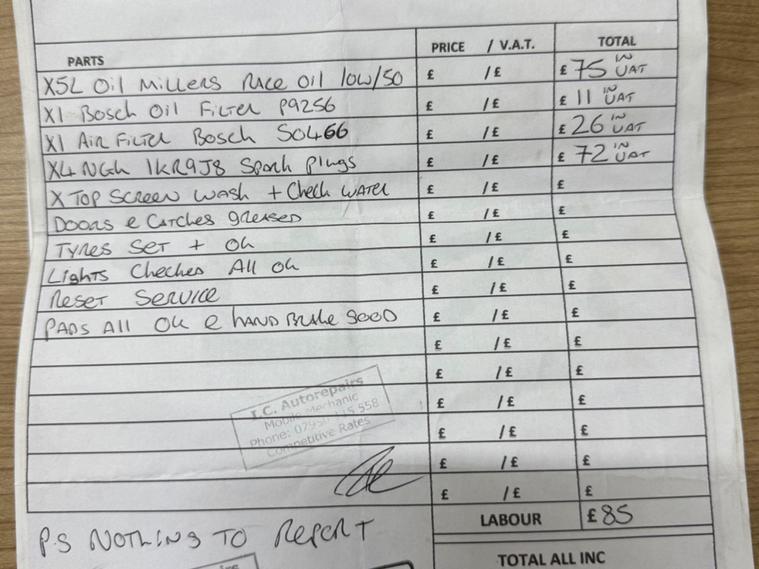 PARTS PRICE / V.A.T. TOTAL
X5L Oil Millers Race Oil 10W/50 £ / £ £ 75 IN VAT
X1 Bosch Oil Filter P9256 £ / £ £ 11 IN VAT
X1 Air Filter Bosch S0466 £ / £ £ 26 IN VAT
X4 NGK 1KR9J8 Spark Plugs £ / £ £ 72 IN VAT
X Top Screen Wash + Check Water £ / £ £
Doors & Catches greased £ / £ £
Tyres Set + Ok £ / £ £
Lights Checked All Ok £ / £ £
Reset Service £ / £ £
Pads All Ok & Hand Brake Good £ / £ £
£ / £ £
£ / £ £
£ / £ £
£ / £ £
£ / £ £
£ / £ £
Autorepairs
Mobile Mechanic
Phone: 558
Competitive Rates
LABOUR £ 85
P.S NOTHING TO REPORT
TOTAL ALL INC